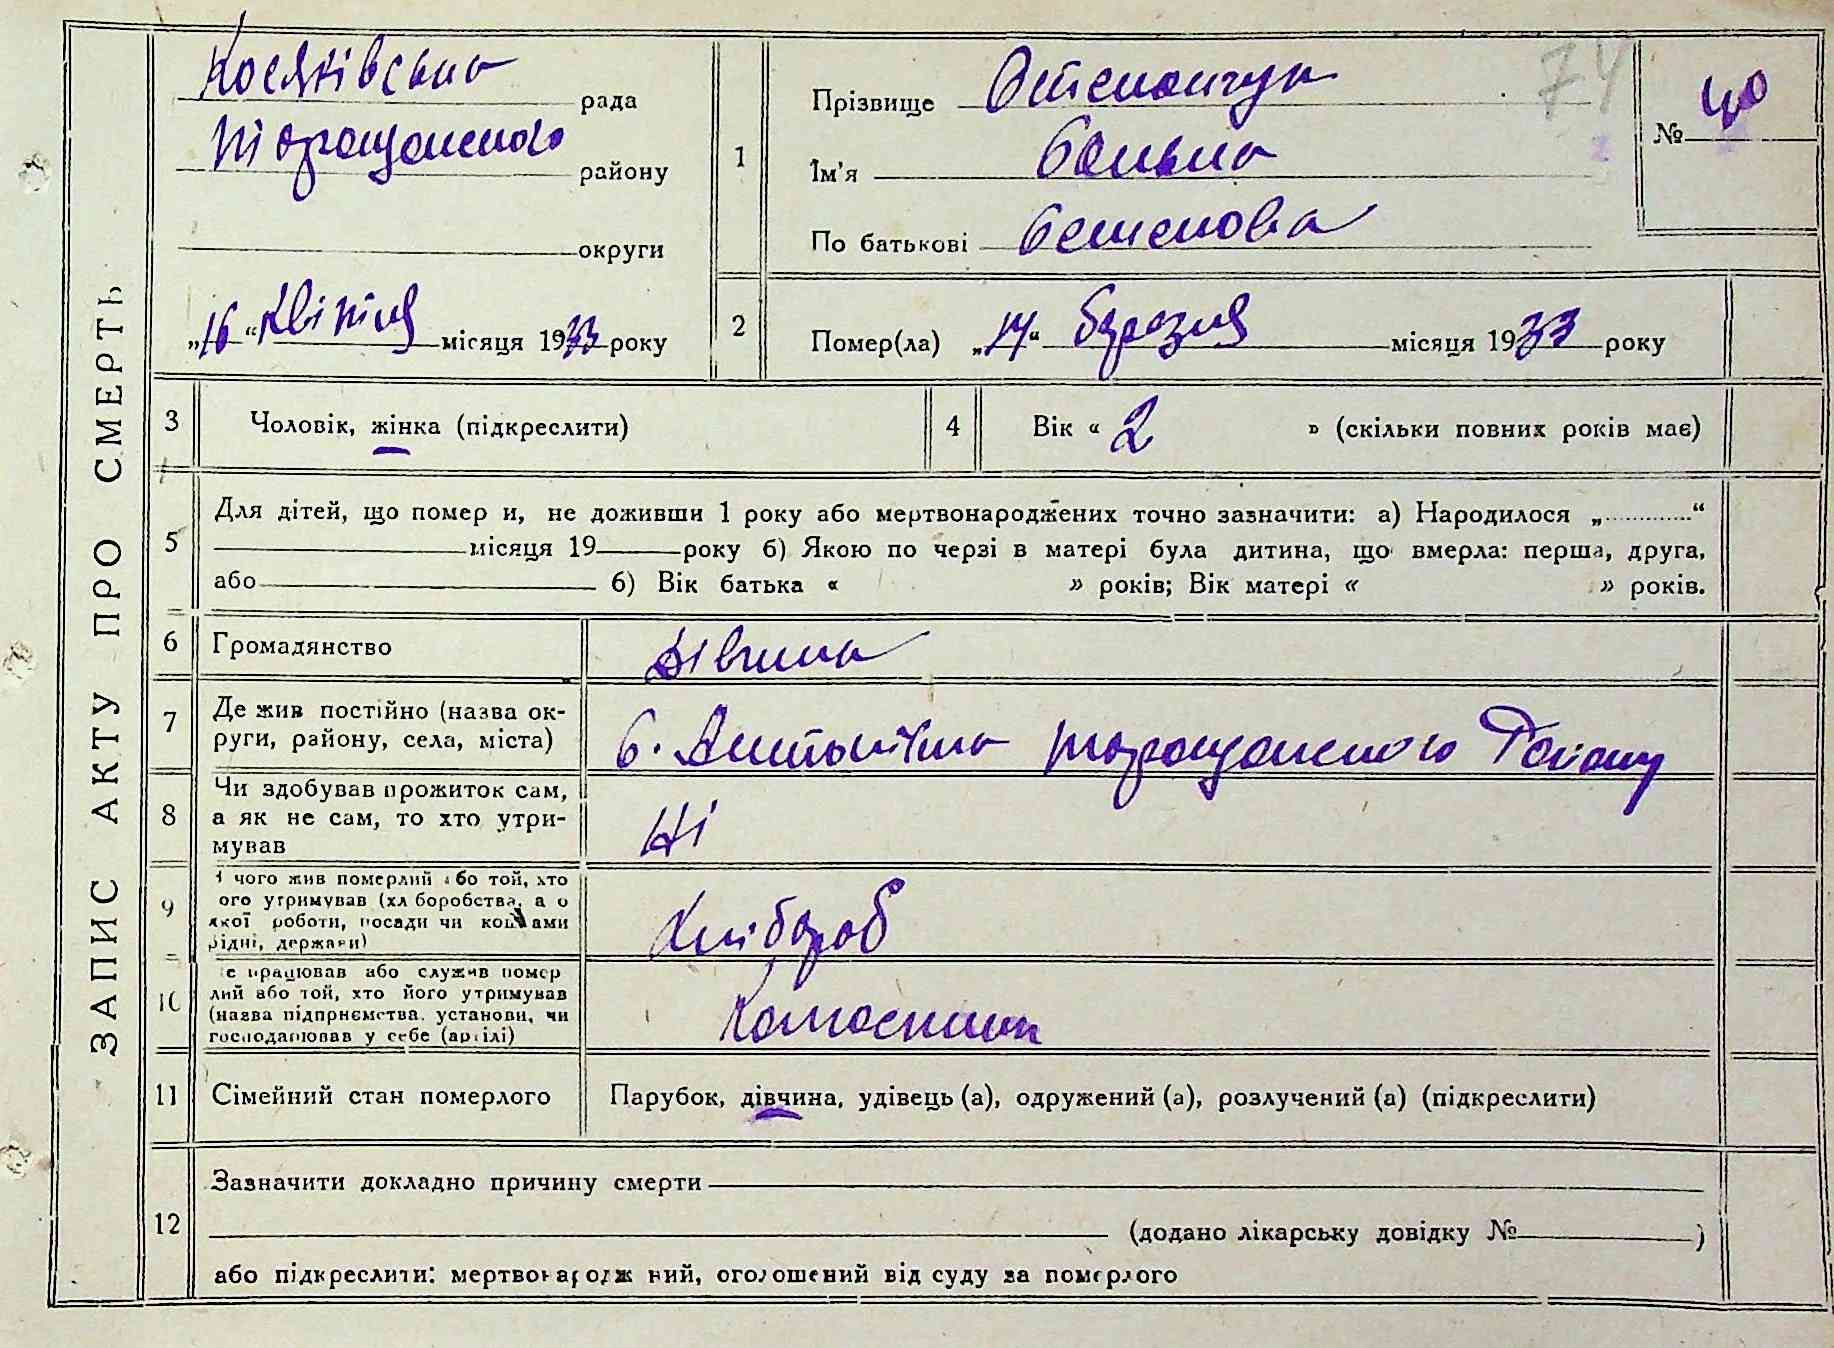 ЗАПИС АКТУ ПРО СМЕРТЬ
Косяківська рада
Таращанського району
округи
„16“ квітня місяця 1933 року
1
Прізвище
Ім'я
По батькові
№ 40
74
2
Помер(ла) „14“ березня місяця 1933 року
3
Чоловік, жінка (підкреслити)
4
Вік « 2 » (скільки повних років має)
5
Для дітей, що помер и, не доживши 1 року або мертвонароджених точно зазначити: а) Народилося „............“
місяця 19 року б) Якою по черзі в матері була дитина, що вмерла: перша, друга,
або б) Вік батька « » років; Вік матері « » років.
6
Громадянство
Дівчина
7
Де жив постійно (назва ок-
руги, району, села, міста)
с. Антонівка таращанского Району
8
Чи здобував прожиток сам,
а як не сам, то хто утри-
мував
Ні
9
чого жив померлий або той, хто
ого утримував (хл боробства, а о
якої роботи, посади чи коштами
рідні, держави)
Хлібороб
10
е працював або служив помер
лий або той, хто його утримував
(назва підприємства, установи, чи
господарював у себе (артілі)
Колгоспник
11
Сімейний стан померлого
Парубок, дівчина, удівець (а), одружений (а), розлучений (а) (підкреслити)
12
Зазначити докладно причину смерти
(додано лікарську довідку № )
або підкреслити: мертвонароджений, оголошений від суду за померлого